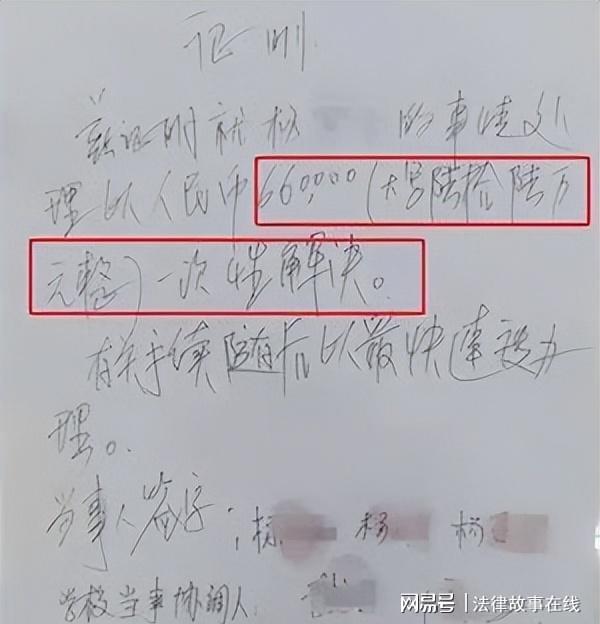 证明
兹证明就杨 的事情处
理以人民币660,000(大写陆拾陆万
元整)一次性解决。
有关手续随后以最快速度办
理。
当事人签字:杨 杨 杨
学校当事协调人:
网易号 | 法律故事在线